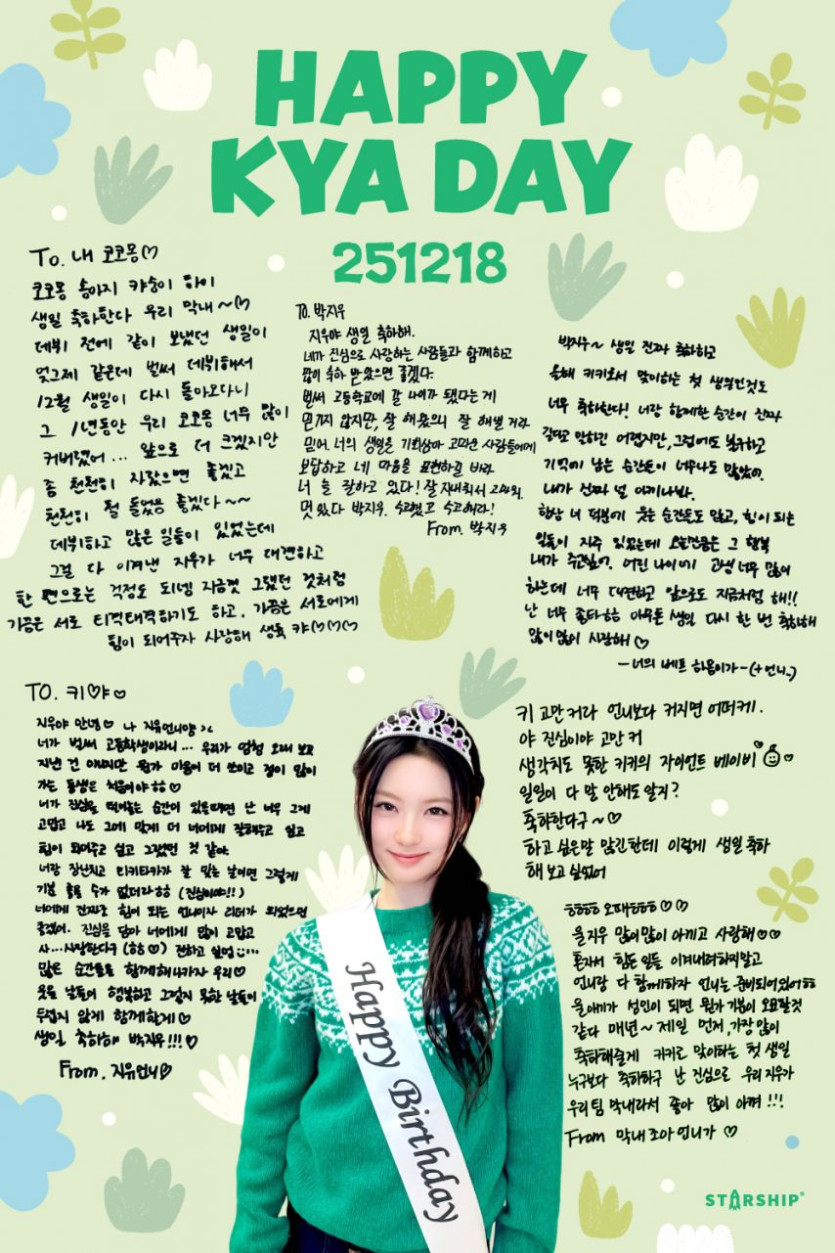 HAPPY
KYA DAY
251218
To. 내 코코몽♡
코코몽 송아지 캬송이 하이
생일 축하한다 우리 막내~♡
데뷔 전에 같이 보냈던 생일이
엊그제 같은데 벌써 데뷔해서
12월 생일이 다시 돌아오다니
그 1년동안 우리 코코몽 너무 많이
커버렸어... 앞으로 더 크겠지만
좀 천천히 자랐으면 좋겠고
천천히 철 들었음 좋겠다~~
데뷔하고 많은 일들이 있었는데
그걸 다 이겨낸 지우가 너무 대견하고
한 편으로는 걱정도 되넹 지금껏 그랬던 것처럼
가끔은 서로 티격태격하기도 하고, 가끔은 서로에게
힘이 되어주자 사랑해 생축 캬♡♡♡
TO. 박지우
지우야 생일 축하해.
네가 진심으로 사랑하는 사람들과 함께하고
많이 축하 받았으면 좋겠다.
벌써 고등학교에 갈 나이가 됐다는 게
믿기지 않지만, 잘 해왔으니 잘 해낼 거라
믿어. 너의 생일을 기회삼아 고마운 사람들에게
보답하고 네 마음을 표현하길 바라
너 늘 잘하고 있다! 잘 자내줘서 고마워.
멋있다 박지우. 수고했고 수고해라!
From. 박지우
박지우~ 생일 진짜 축하하고
올해 키키로서 맞이하는 첫 생일인것도
너무 축하한다! 너랑 함께한 순간이 진짜
말하긴 어렵지만, 그럼에도 불구하고
기억에 남는 순간들이 너무나도 많았어.
내가 진짜 널 아끼나봐.
항상 너 덕분에 웃는 순간도 많고, 힘이 되는
일들이 자주 있었는데 오늘만큼은 그 행복
내가 주고싶어. 어린 나이에 고생 너무 많이
하는데 너무 대견하고 앞으로도 지금처럼 해!!
난 너무 좋다ㅎㅎ 아무튼 생일 다시 한 번 축하해
많이많이 사랑해♡
-너의 베프 하음이가-(+언니..)
TO. 키♡야♡
지우야 안녕♡ 나 지유언니야 >.<
너가 벌써 고등학생이라니... 우리가 엄청 오래 보고
지낸 건 아니지만 뭔가 마음이 더 쓰이고 정이 많이
가는 동생은 처음이야ㅎㅎ♡
너가 진심을 털어놓는 순간이 있을때면 난 너무 그게
고맙고 나도 그에 맞게 더 너에게 잘해주고 싶고
힘이 되어주고 싶고 그랬던 것 같아
너랑 장난치고 티키타카가 잘 맞는 날이면 그렇게
기분 좋을 수가 없더라ㅎㅎ (진심이야!!)
너에게 진짜로 힘이 되는 언니이자 리더가 되었으면
좋겠어. 진심을 담아 너에게 많이 고맙고
사...사랑한다구 (ㅎㅎ♡) 전하고 싶었...
많은 순간들을 함께해나가자 우리♡
웃을 날들이 행복하고 그렇지 못한 날들이
두렵지 않게 함께할게♡
생일 축하해 박지우!!!♡
From. 지유언니♡
키 고만 커라 언니보다 커지면 어떠케.
야 진심이야 고만 커
생각치도 못한 키키의 자이언트 베이비♡
일일이 다 말 안해도 알지?
축하한다구~♡
하고 싶은말 많긴한데 이렇게 생일 축하
해 보고 싶었어
ㅎㅎㅎㅎ♡♡
울지우 많이많이 아끼고 사랑해♡♡
혼자서 힘든 일들 이겨내려하지말고
언니랑 다 함께하자 언니는 준비되어있어ㅎㅎ
울아기가 성인이 되면 뭔가 기분이 오묘할것
같다 매년~ 제일 먼저, 가장 많이
축하해줄게 키키로 맞이하는 첫 생일
누구보다 축하하구 난 진심으로 우리 지우가
우리팀 막내라서 좋아 많이 아껴!!!
From 막내 조아 언니가♡
Happy Birthday
STARSHIP